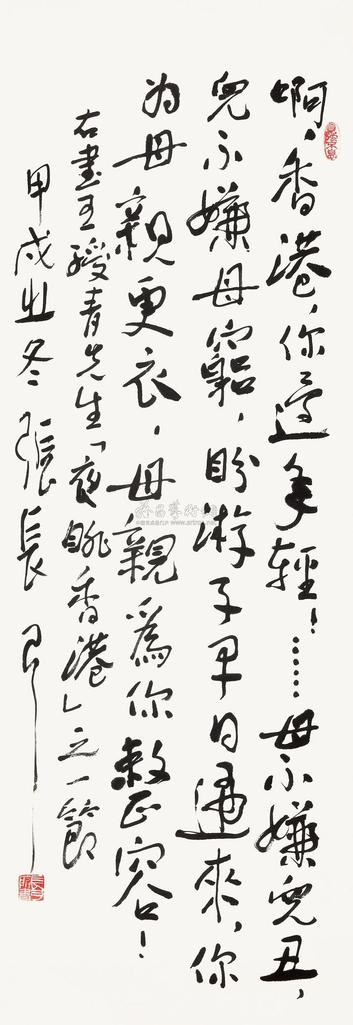 啊，香港，你年輕！……母不嫌兒丑，
兒不嫌母窮，盼游子早日來，你
为母親更衣，母親爲你整容！
右書王綬青先生「夜眺香港」之一節
甲戌冬 張長弓